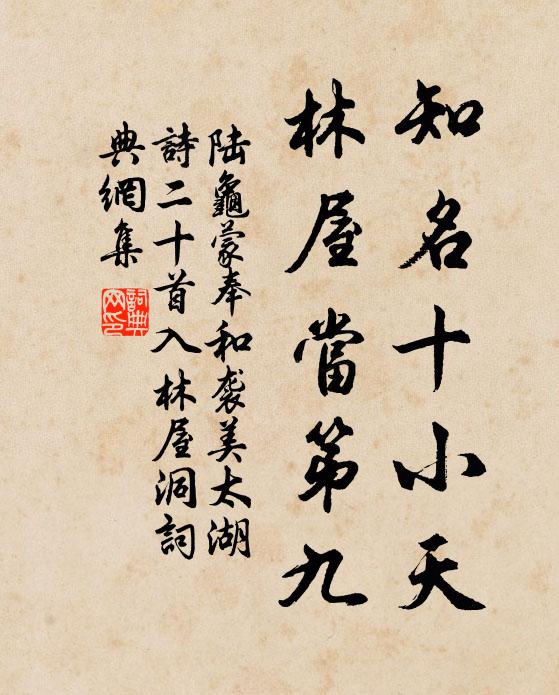 知名十小天
林屋當第九
陆龜蒙奉和袭美太湖
詩二十首入林屋洞詞
典網集
詞典网印